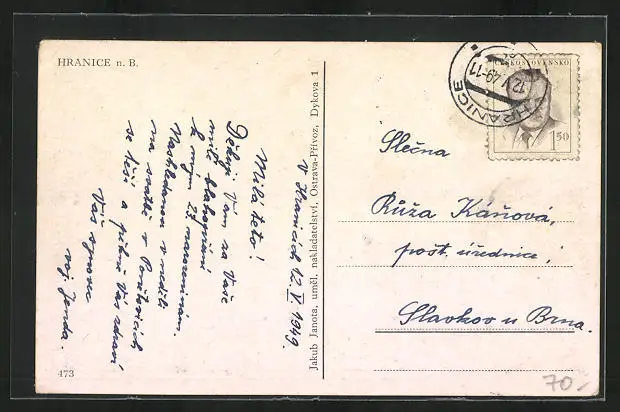 HRANICE n. B.
V Hranicích 12. V. 1949.
Milá teto!
Děkuji Vám za Vaše
milé blahopřání
k mým 27. narozeninám.
Nashledanou v neděli
na svatbě v
se těší a pěkně Vás zdraví
Váš synovec
voj. Jenda.
473
Jakub Janota, uměl. nakladatelství, Ostrava-Přívoz, Dykova 1
HRANICE
12.V.49-11
ČESKOSLOVENSKO
1.50
Slečna
Růža Káňová,
pošt. úřednice,
Slavkov u Brna.
70,-